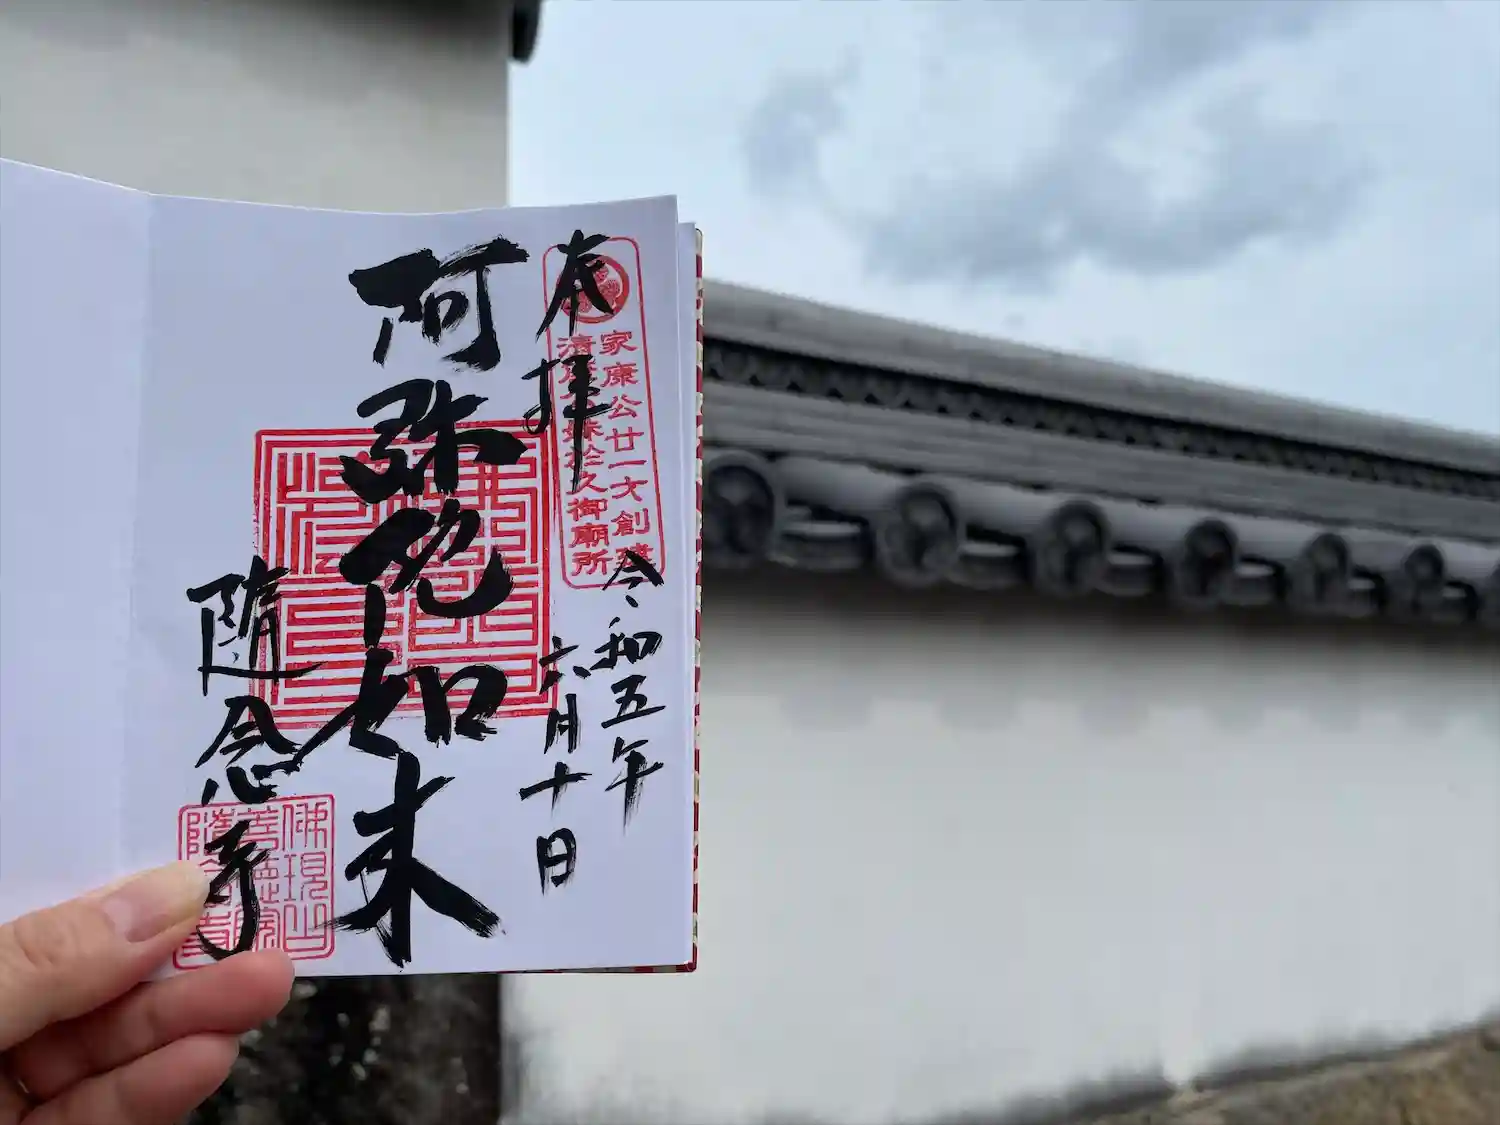 本拝
家康公廿一才創建
清康公妹於久御廟所
令和五年
六月十日
阿弥陀如来
随念寺
佛現山
善德院
隨念寺